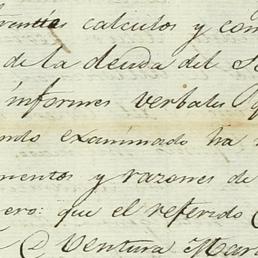 calculos y con
de la deuda del S
informes verbales q
ando examinado ha
mentos y razones de
ero: que el referido
D. Ventura Mar